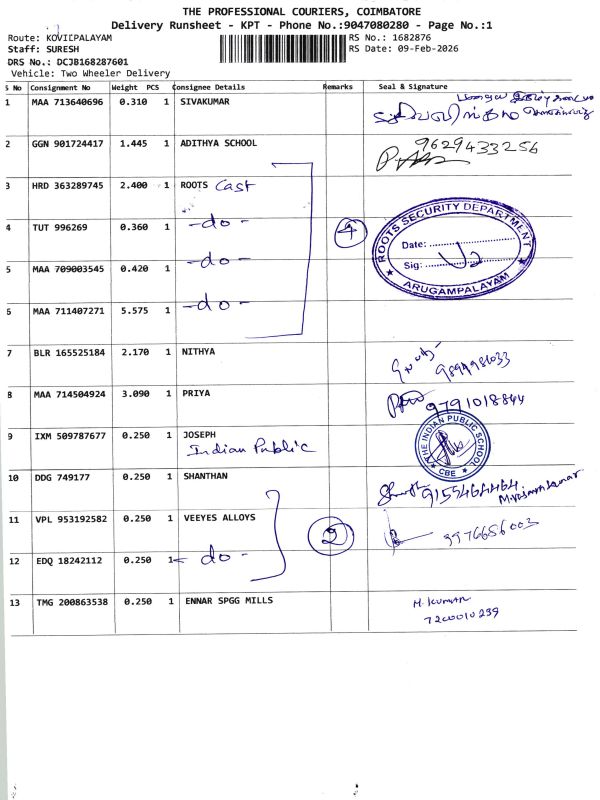 THE PROFESSIONAL COURIERS, COIMBATORE
Delivery Runsheet - KPT - Phone No.:9047080280 - Page No.:1
Route: KOVIEPALAYAM
RS No.: 1682876
Staff: SURESH
RS Date: 09-Feb-2026
DRS No.: DCJB168287601
Vehicle: Two Wheeler Delivery
S No Consignment No Weight PCS Consignee Details Remarks Seal & Signature
1 MAA 713640696 0.310 1 SIVAKUMAR
2 GGN 901724417 1.445 1 ADITHYA SCHOOL 9629433256
3 HRD 363289745 2.400 1 ROOTS Cast
4 TUT 996269 0.360 1 -do- 4
ROOTS SECURITY DEPARTMENT
Date:
Sig:
ARUGAMPALAYAM
5 MAA 709003545 0.420 1 -do-
6 MAA 711407271 5.575 1 -do-
7 BLR 165525184 2.170 1 NITHYA
8 MAA 714504924 3.090 1 PRIYA 9791018844
9 IXM 509787677 0.250 1 JOSEPH
Indian Public
THE INDIAN PUBLIC SCHOOL
CBE
10 DDG 749177 0.250 1 SHANTHAN
11 VPL 953192582 0.250 1 VEEYES ALLOYS 2 9976656003
12 EDQ 18242112 0.250 1 -do-
13 TMG 200863538 0.250 1 ENNAR SPGG MILLS M. KUMAR
7200010239